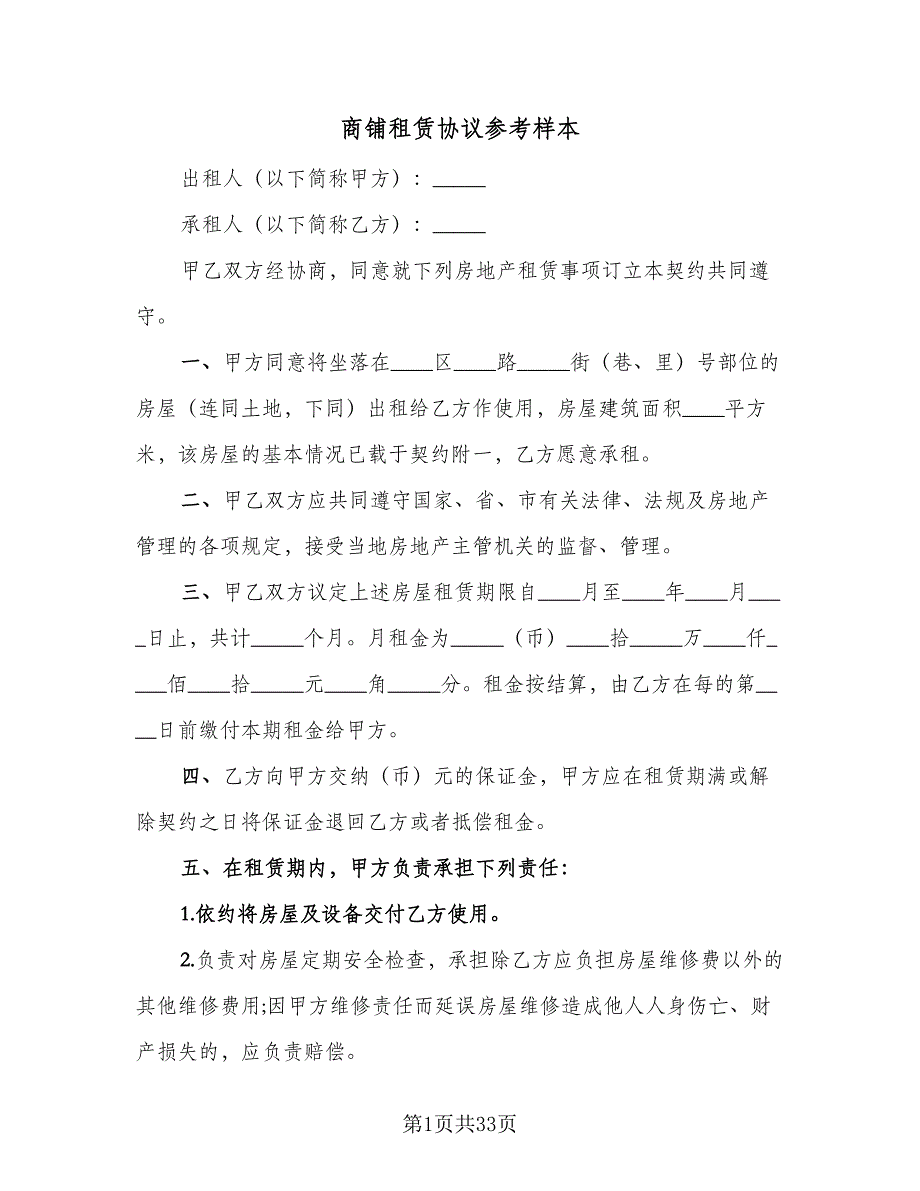 商铺租赁协议参考样本
出租人（以下简称甲方）：_____
承租人（以下简称乙方）：_____
甲乙双方经协商，同意就下列房地产租赁事项订立本契约共同遵
守。
一、甲方同意将坐落在____区____路_____街（巷、里）号部位的
房屋（连同土地，下同）出租给乙方作使用，房屋建筑面积____平方
米，该房屋的基本情况已载于契约附一，乙方愿意承租。
二、甲乙双方应共同遵守国家、省、市有关法律、法规及房地产
管理的各项规定，接受当地房地产主管机关的监督、管理。
三、甲乙双方议定上述房屋租赁期限自____月至____年____月___
_日止，共计_____个月。月租金为_____（币）____拾_____万____仟_
___佰____拾_____元____角_____分。租金按结算，由乙方在每的第__
__日前缴付本期租金给甲方。
四、乙方向甲方交纳（币）元的保证金，甲方应在租赁期满或解
除契约之日将保证金退回乙方或者抵偿租金。
五、在租赁期内，甲方负责承担下列责任：
1.依约将房屋及设备交付乙方使用。
2.负责对房屋定期安全检查，承担除乙方应负担房屋维修费以外的
其他维修费用;因甲方维修责任而延误房屋维修造成他人人身伤亡、财
产损失的，应负责赔偿。
第1页共33页